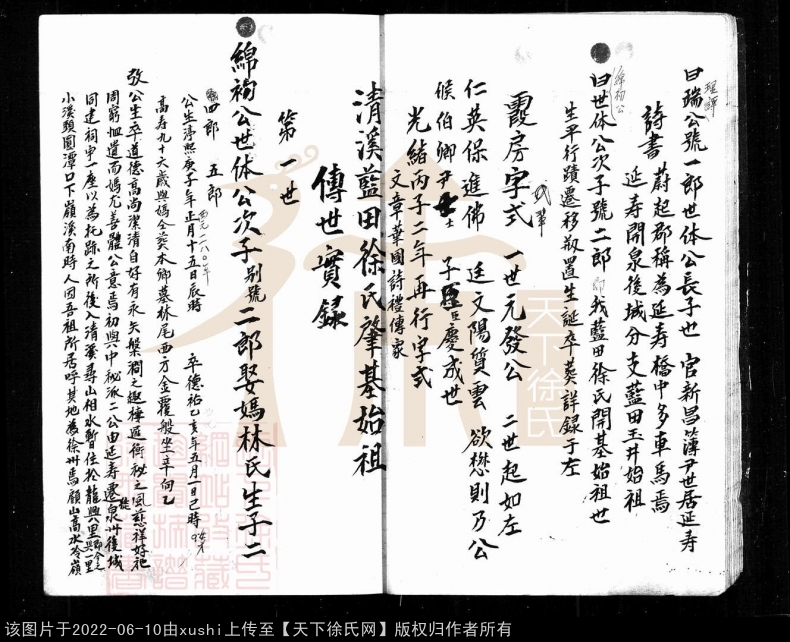 曰瑞公號一郎世体公長子也 官新昌簿尹世居延寿
詩書 蔚起郡稱為延寿橋中多車馬焉
延寿開泉後城分支藍田玉井始祖
曰世体公次子號二郎 即我藍田徐氏開基始祖世
綿祠公
生平行蹟遷移取置生誕卒葬詳録于左
霞房字式 一世元發公 二世起如左
武輩
仁英保進佛 廷文陽質雲 欲懋則乃公
候伯卿尹士 子臣慶成世
光緒丙子二年再行字式
文章華國詩禮傳家
清溪藍田徐氏肇基始祖
傳世實録
第一世
綿祠公世体公次子别號二郎娶媽林氏生子二
四郎 五郎
公生淳熙庚子年正月十五日辰時 卒德祐乙亥年五月一日己時
高寿九十六歲與媽仝葵本鄉墓林尾西方金覆般坐辛向乙
攷公生卒道德高尚潔清自好有永矢槃澗之趣棲遲衡祕之風慈祥好祀
周窮恤遺而媽尤善體公意焉初與中祕派二公由延寿遷泉州後城
同建祠宇一座以為托跡之所後入清溪尋山相水暫住於龍興里
小溪頭圓潭口下嶺溪南時人因吾祖所居呼其地為徐州馬願山高水冷嶺
天下徐氏
该图片于2022-06-10由xushi上传至【天下徐氏网】版权归作者所有